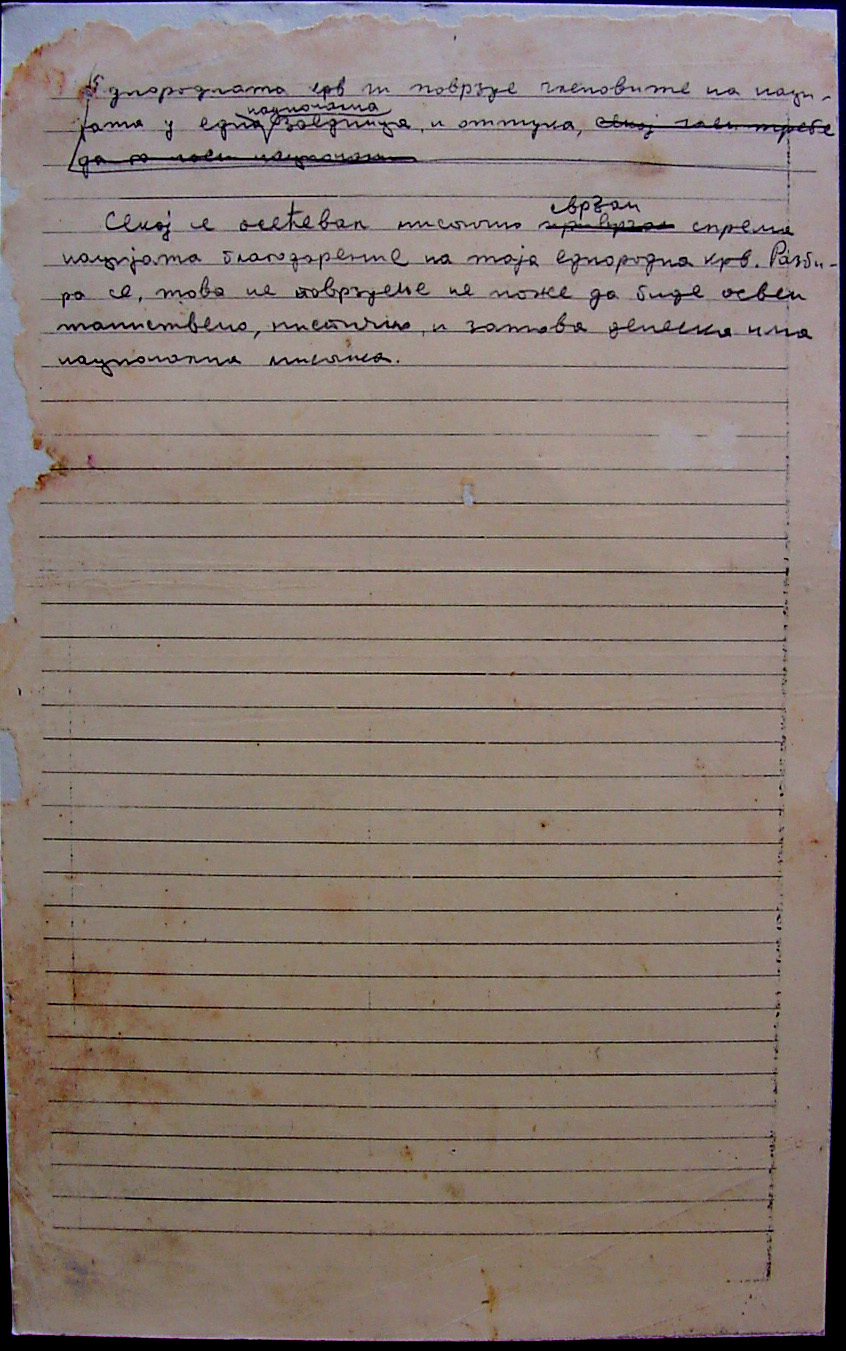 Еднородната крв ги поврзуе членовите на наци-
национална
јата у една заедница, и оттука, секој член требе
да го
сврзан
Секој е осеќеван мистично спрема
нацијата благодарение на таја еднородна крв. Разби-
ра се, това не поврзуење не може да биде освен
таинствено, мистично, и затова денеска има
национална мистика.